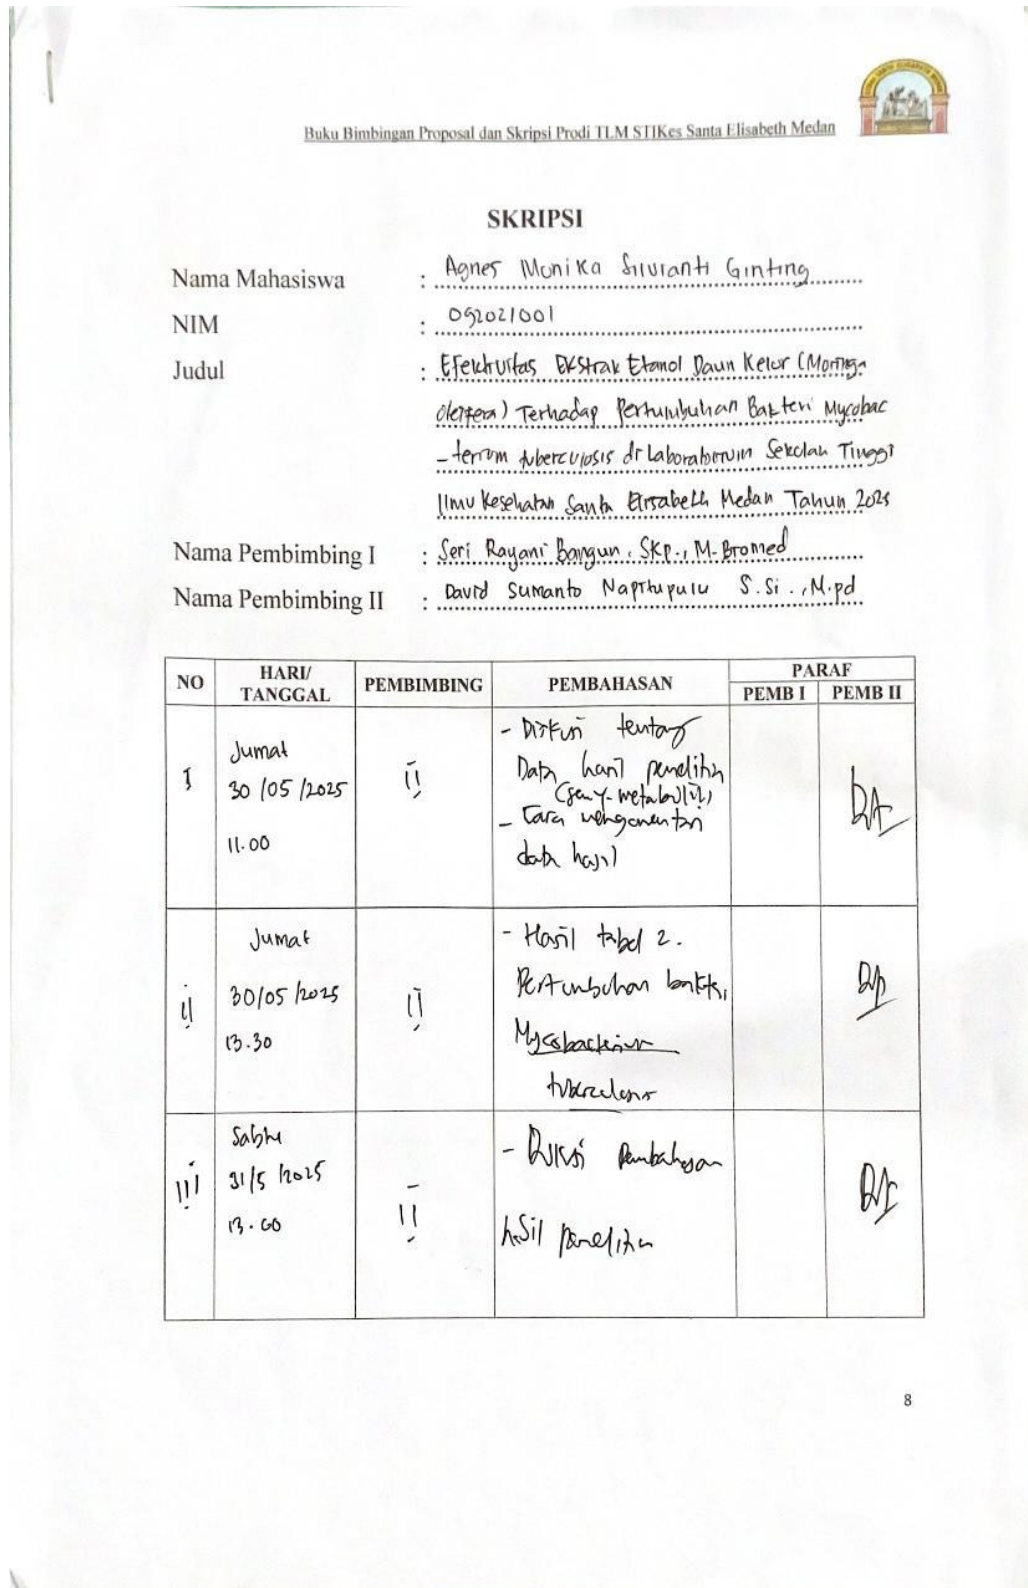 Buku Bimbingan Proposal dan Skripsi Prodi TLM STIKes Santa Elisabeth Medan
SKRIPSI
Nama Mahasiswa : Agnes Monika Ginting
NIM : 092021001
Judul : Efektivitas Ekstrak Etanol Daun Kelor (Moringa
Oleifera) Terhadap Pertumbuhan Bakteri Mycobac
-terium tuberculosis di Laboratorium Sekolah Tinggi
Ilmu Kesehatan Santa Elisabeth Medan Tahun 2025
Nama Pembimbing I : Seri Rayani Bangun, SKp., M-Biomed
Nama Pembimbing II : David Sumanto Napitupulu S.Si., M.pd
NO HARI/ TANGGAL PEMBIMBING PEMBAHASAN PARAF
PEMB I PEMB II
I Jumat II - Diskusi tentang
30/05/2025 Data hasil penelitian
- Cara
11.00 data hasil
Jumat - Hasil tabel 2.
II 30/05/2025 II Pertumbuhan bakteri
13.30 Mycobacterium
tuberculosis
Sabtu - pembahasan
III 31/5/2025 II
13.00 hasil penelitian
8